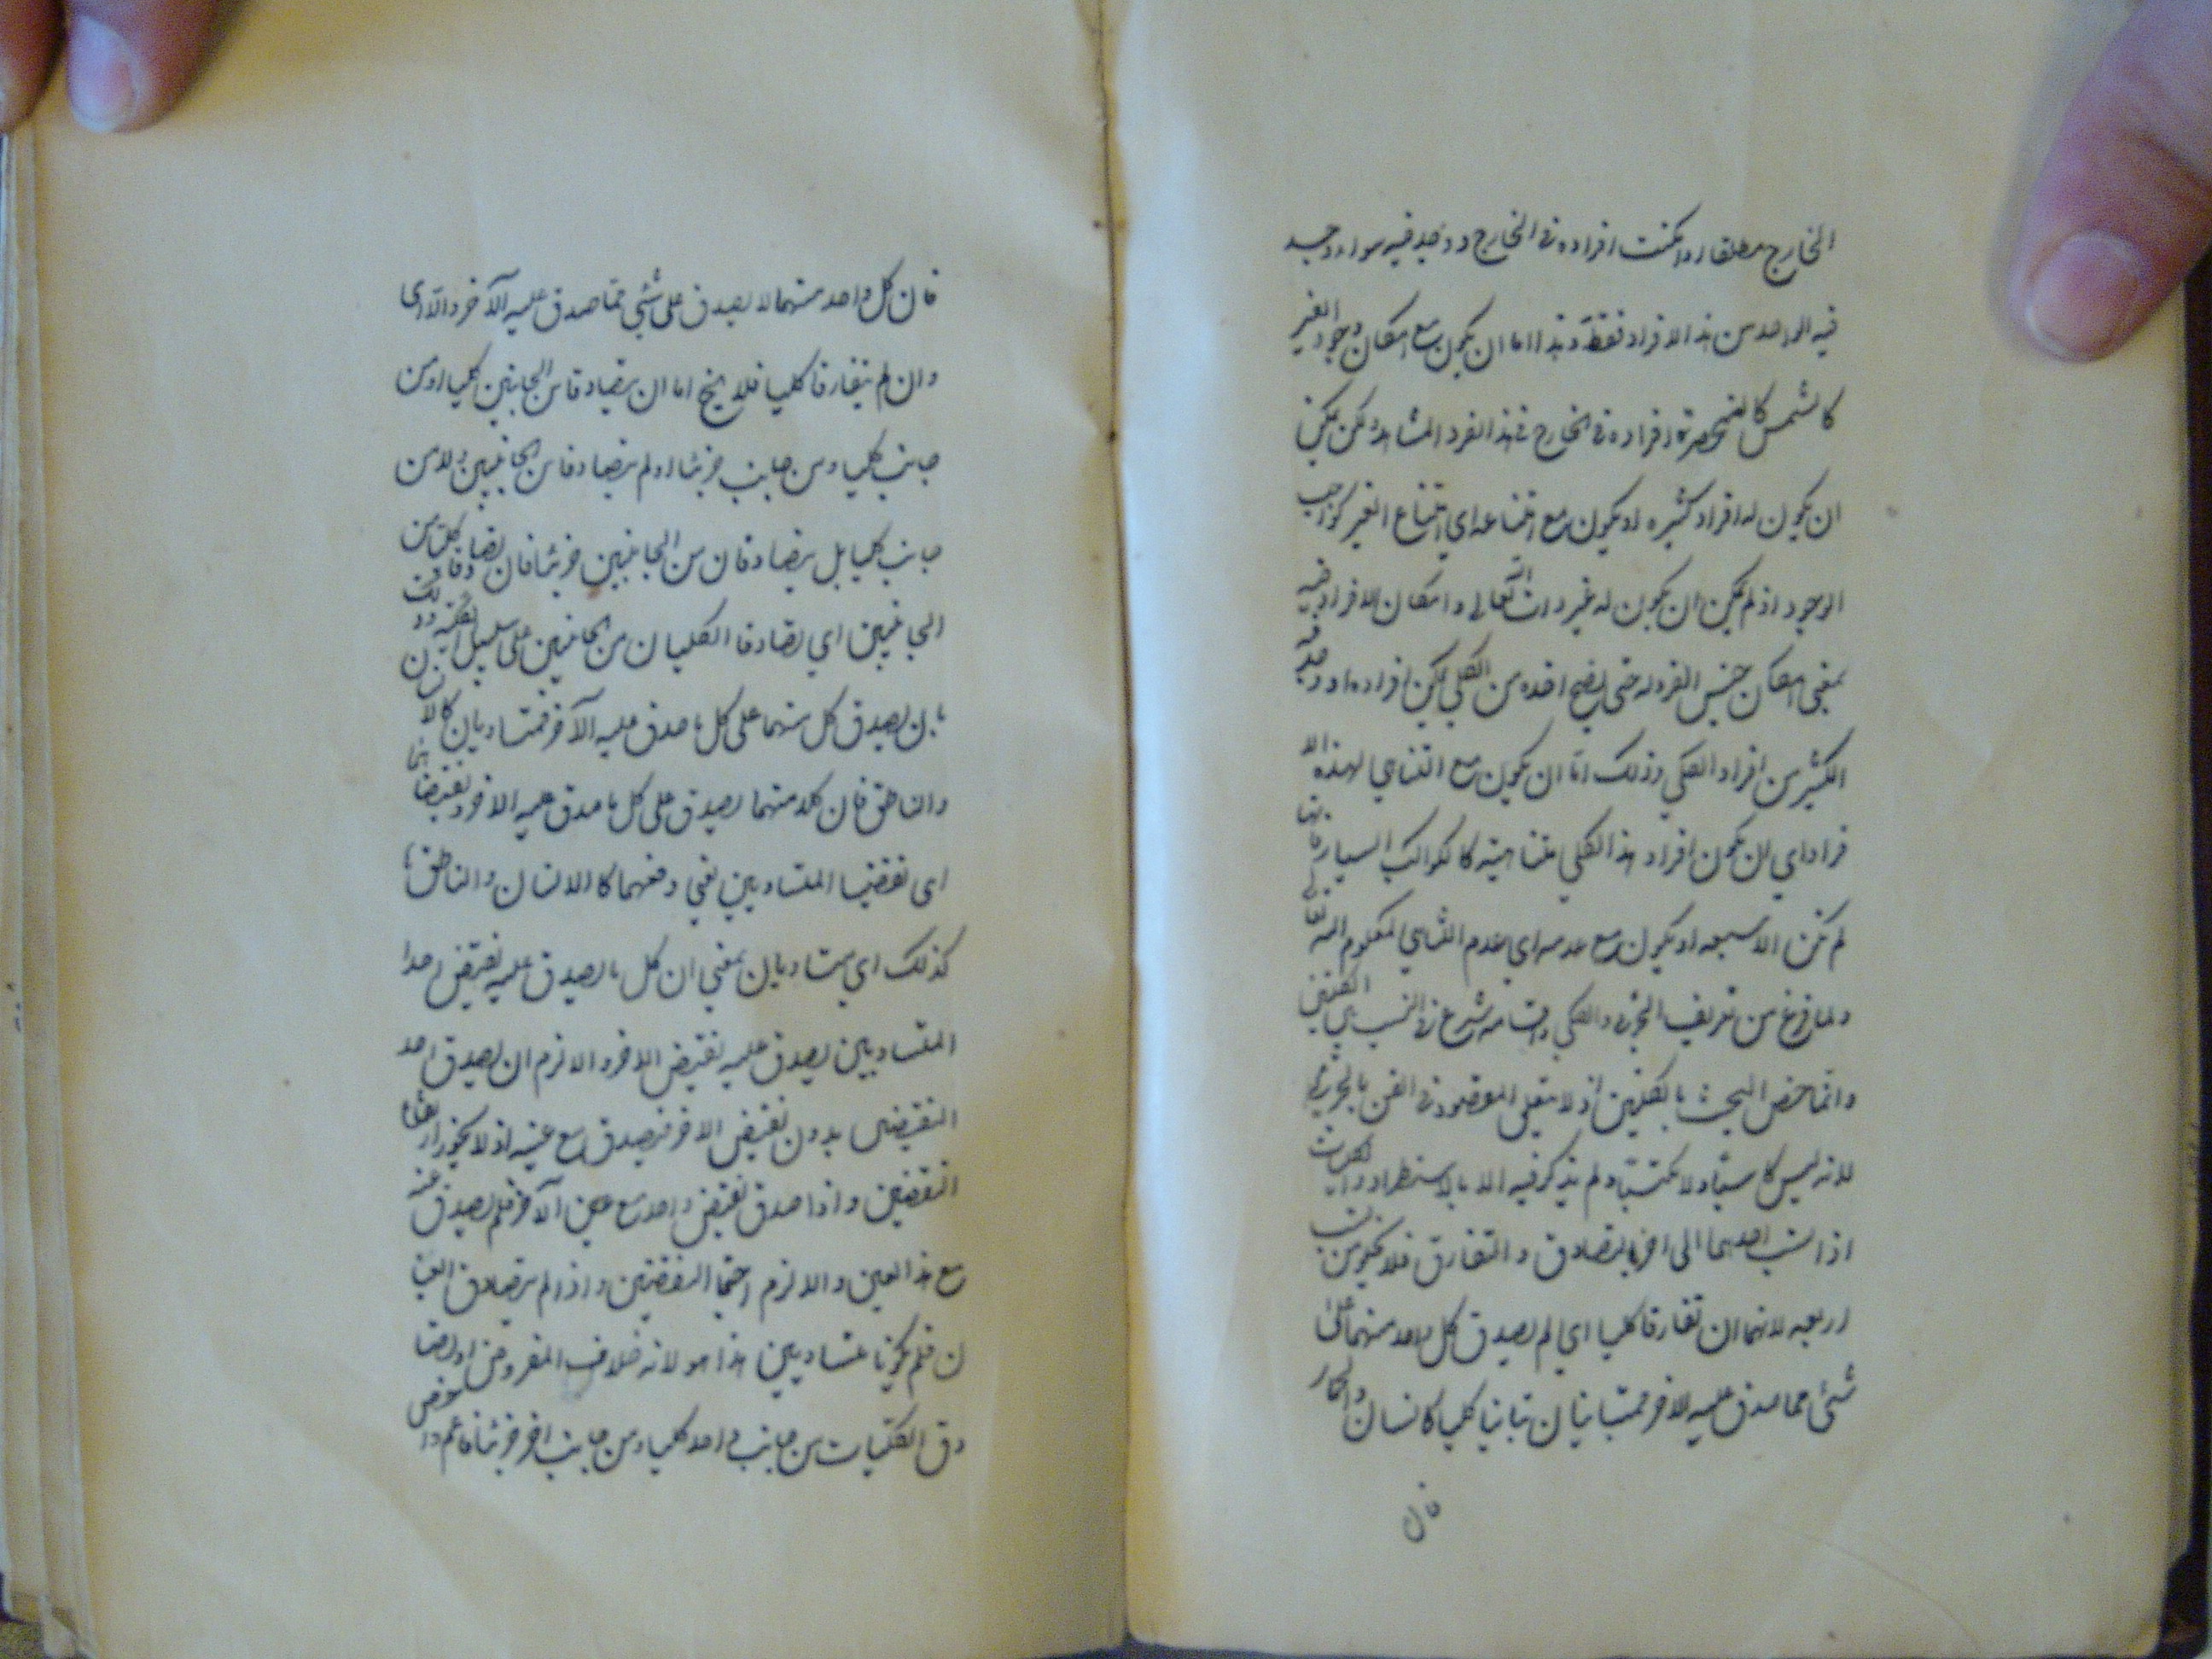 الخارج مطلقا او امكنت افراده فى الخارج ووجد فيه سواء وجد
فيه الواحد من هذ الافراد فقط وهذا اما ان يكون مع امكان وجود الغير
كالشمس المنحصرة افراده فى الخارج فى هذ الفرد المشاهد لكن يمكن
ان يكون له افراد كثيره او يكون مع امتناعه اي امتناع الغير كواجب
الوجود اذ لم يمكن ان يكون له غير ذات الله تعالى وامكان الافراد فيه
بمعنى امكان جنس الفرد له حتى يصح اخذه من الكلي يمكن افراده او وجد فيه
الكثير من افراد الكلي وذلك اما ان يكون مع التناهي لهذه الا
فراد اي ان يكون افراد هذ الكلي متناهية كالكواكب السيارة فانها
لم تكن الا سبعه او يكون مع عدمه اي عدم التناهي كمعلوم الله تعالى
ولما فرغ من تعريف الجزئي والكلي واقسامه شرع فى النسب بين الكليين
وانما خص البحث بالكليين اذ لا يتعلق المقصود فى الفن بالجزئي
لانه ليس كاسبا ولا مكتسبا ولم يذكر فيه الا بالاستطراد والكليات
اذا نسب احدهما الى اخر بالتصادق والتفارق فلا يخلو من نسب
اربعه لانهما ان تفارقا كليا اي لم يصدق كل واحد منهما على
شئ مما صدق عليه الاخر فمتباينان تباينا كليا كانسان والحمار
فان
فان كل واحد منهما لا يصدق على شئ مما صدق عليه الآخر والا اى
وان لم يتفارقا كليا فلا يخ اما ان يتصادقا من الجانبين كليا او من
جانب كليا ومن جانب جزئيا او لم يتصادقا من الجانبين ولا من
جانب كليا بل يتصادقان من الجانبين جزئيا فان تصادقا كليا من
الجانبين اي تصادقا الكليان من الجانبين على سبيل الكليه وذلك
بان يصدق كل منهما على كل ما صدق عليه الآخر فمتساويان كالانسان
والناطق فان كلا منهما يصدق على كل ما صدق عليه الاخر ونقيضاهما
اى نقيضا المتساويين يعني رفعهما كالا انسان والناطق
كذلك اي متساويان بمعني ان كل ما يصدق عليه نقيض احدا
المتساويين يصدق عليه نقيض الاخر والا لزم ان يصدق احد
النقيضين بدون نقيض الاخر فيصدق مع عينه اذ لا يجوز ارتفاع
النقيضين واذا صدق نقيض واحد مع عين الآخر فلم يصدق عينه
مع هذ العين والا لزم اجتما النقيضين واذا لم يتصادق العينا
ن فلم يكونا متساويين هذا هو لانه خلاف المفروض او تصا
دق الكليات من جانب واحد كليا ومن جانب اخر جزئيا فاعم واخص